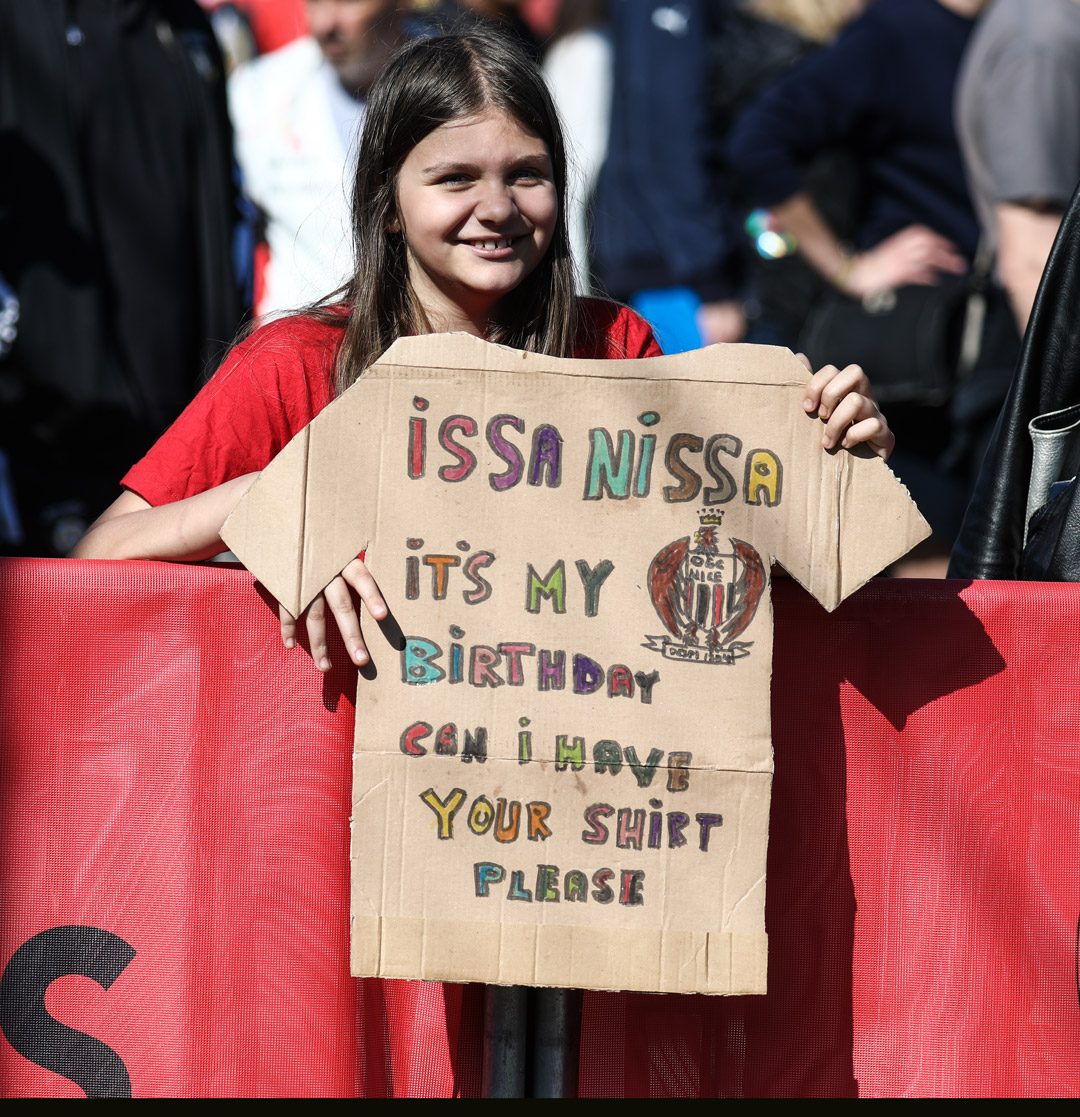 iSSA NiSSA
iT'S MY
OGC
NICE
BiRTHDAY
CAN i HAVE
YOUR SHiRT
PLEASE
S